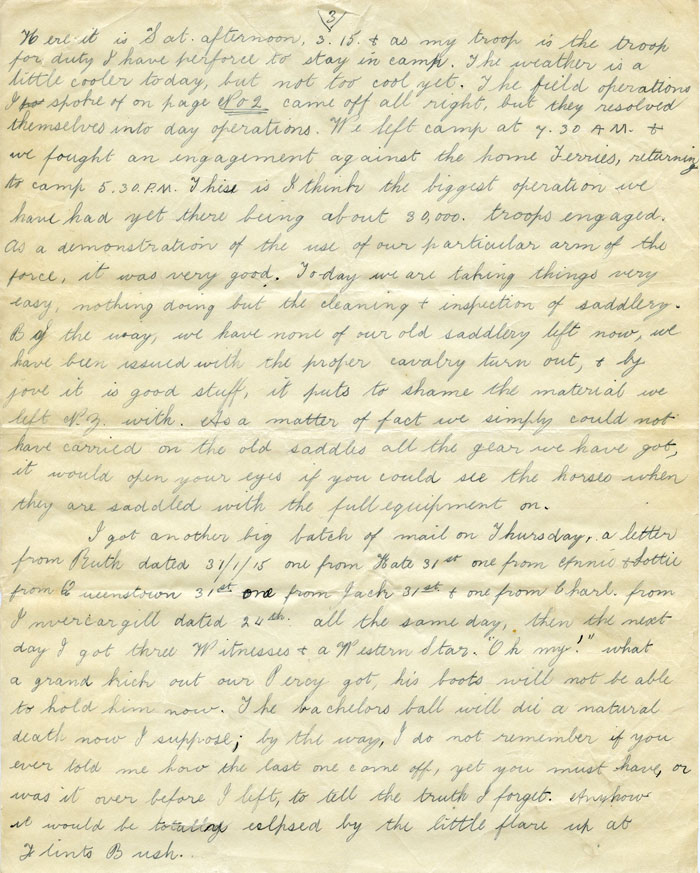 3
Here it is Sat. afternoon, 3.15. & as my troop is the troop
for duty I have perforce to stay in camp. The weather is a
little cooler today, but not too cool yet. The field operations
I spoke of on page No 2 came off all right, but they resolved
themselves into day operations. We left camp at 7.30 A.M. &
we fought an engagement against the home Terries, returning
to camp 5.30.P.M. This is I think the biggest operation we
have had yet there being about 30,000. troops engaged.
As a demonstration of the use of our particular arm of the
force, it was very good. Today we are taking things very
easy, nothing doing but the cleaning & inspection of saddlery.
By the way, we have none of our old saddlery left now, we
have been issued with the proper cavalry turn out, & by
jove it is good stuff, it puts to shame the material we
left N.Z. with. As a matter of fact we simply could not
have carried on the old saddles all the gear we have got,
it would open your eyes if you could see the horses when
they are saddled with the full equipment on.
I got another big batch of mail on Thursday, a letter
from Ruth dated 31/1/15 one from Kate 31st one from Annie & Lottie
from Queenstown 31st one from Jack 31st & one from Charl. from
Invercargill dated 24th. all the same day, then the next
day I got three Witnesses & a Western Star. "Oh my!" what
a grand kick out our Percy got, his boots will not be able
to hold him now. The bachelors ball will die a natural
death now I suppose; by the way, I do not remember if you
ever told me how the last one came off, yet you must have, or
was it over before I left, to tell the truth I forget. Anyhow
it would be totally eclpsed by the little flare up at
Flints Bush.